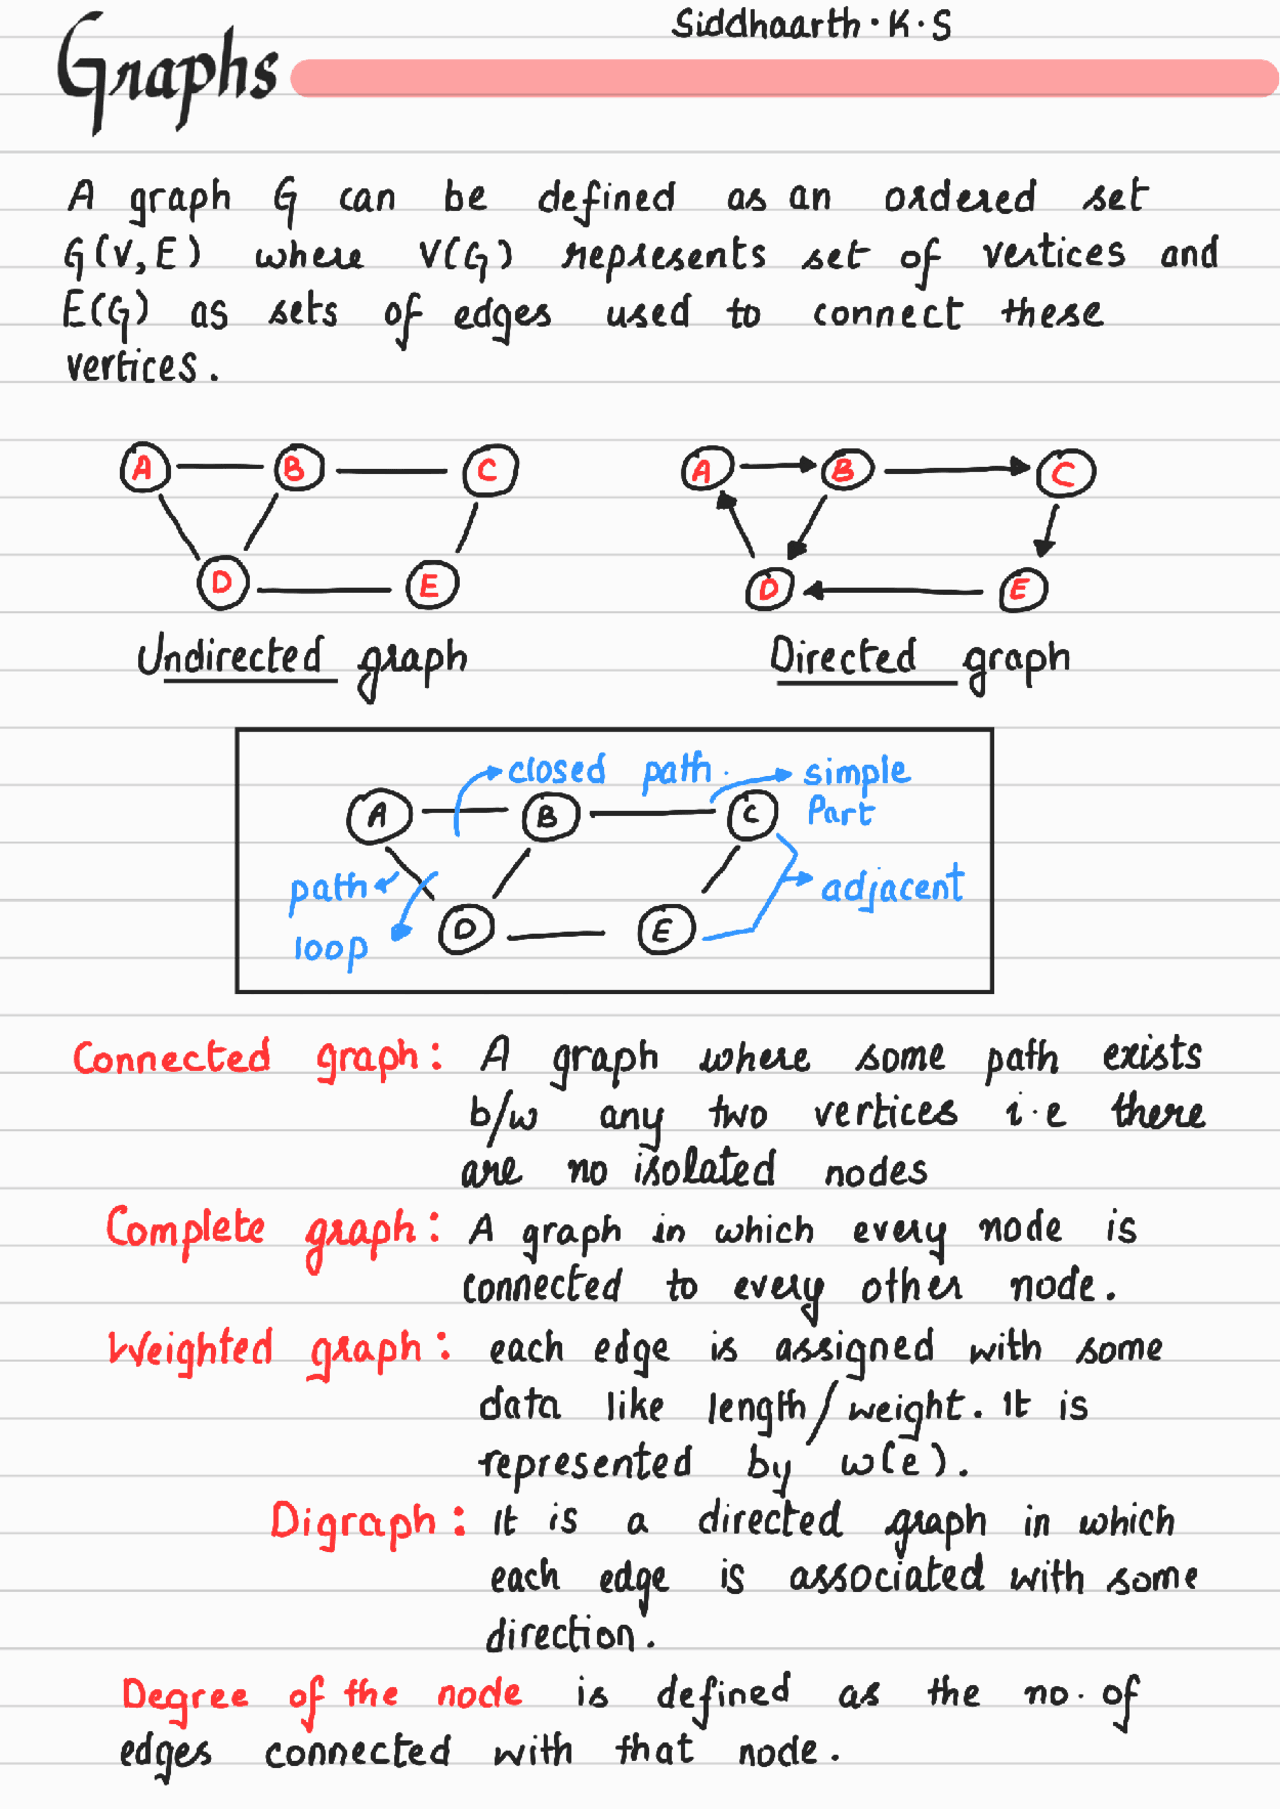 Siddhaarth.K.S
Graphs
A graph G can be defined as an ordered set
G(V,E) where V(G) represents set of vertices and
E(G) as sets of edges used to connect these
vertices.
A B C
D E
Undirected graph
A B C
D E
Directed graph
closed path.
simple
Part
A B C
path
adjacent
D E
loop
Connected graph: A graph where some path exists
b/w any two vertices i.e there
are no isolated nodes
Complete graph: A graph in which every node is
connected to every other node.
Weighted graph: each edge is assigned with some
data like length/weight. It is
represented by w(e).
Digraph: It is a directed graph in which
each edge is associated with some
direction.
Degree of the node is defined as the no. of
edges connected with that node.